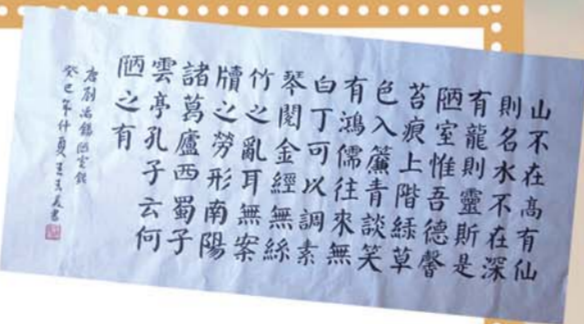 山不在高有仙
則名水不在深
有龍則靈斯是
陋室惟吾德馨
苔痕上階綠草
色入簾青談笑
有鴻儒往來無
白丁可以調素
琴閱金經無絲
竹之亂耳無案
牘之勞形南陽
諸葛廬西蜀子
雲亭孔子云何
陋之有
唐劉禹錫陋室銘
癸巳年仲夏